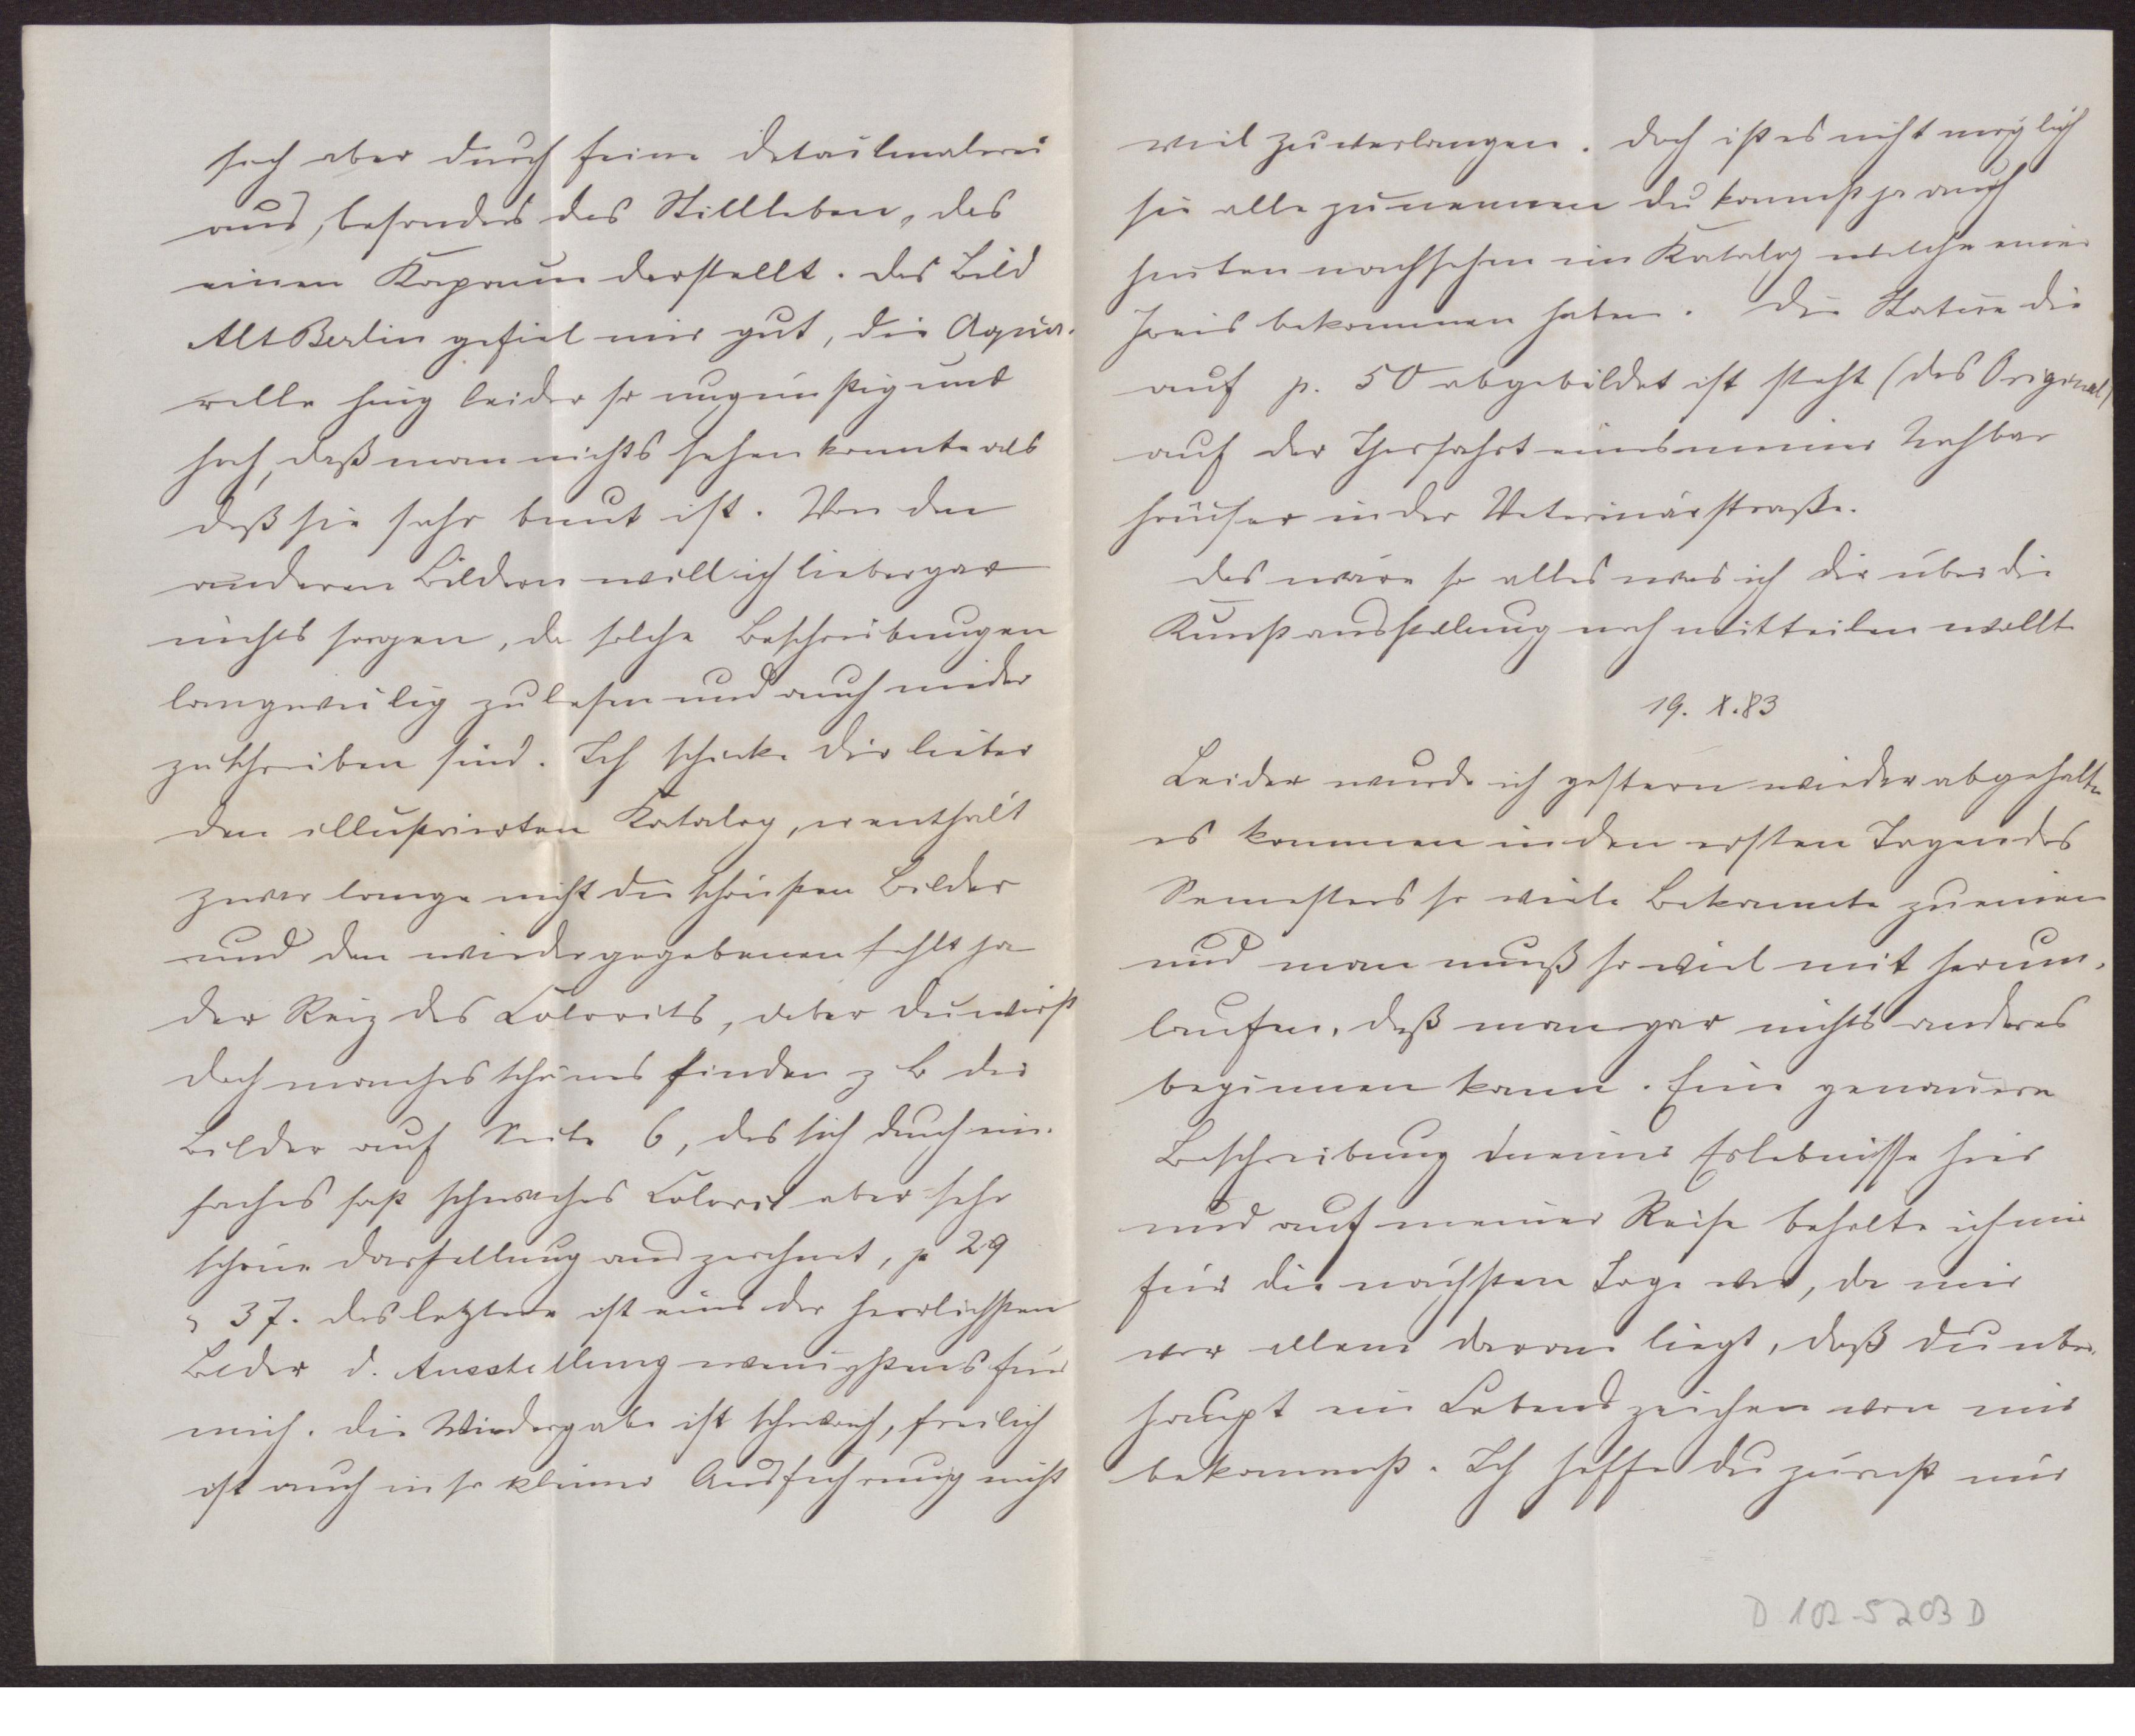 sich aber durch feine Detailmalerei
aus, besonders das Stillleben, das
einen Kapaun darstellt. Das Bild
Alt Berlin gefiel mir gut, die Aqua-
relle hing leider so ungünstig und
hoch, daß man nichts sehen konnte als
daß sie sehr bunt ist. Von den
anderen Bildern will ich lieber gar
nichts sagen, da solche Beschreibungen
langweilig zu lesen und auch
zu schreiben sind. Ich schicke dir lieber
den illustrierten Katalog, er enthält
zwar lange nicht die schönsten Bilder
und den wiedergegebenen fehlt ja
der Reiz des Colorits, aber du wirst
doch manches schönes finden z B die
Bilder auf Seite 6, das sich durch ein-
faches fast schwaches Colorit aber sehr
schöne Darstellung auszeichnet, p 29
37. das letztere ist eins der herrlichsten
Bilder d. Ausstellung wenigstens für
mich. Die Wiedergabe ist schwach, freilich
ist auch in so kleiner Ausführung nicht
viel zu verlangen. Doch ist es nicht möglich
sie alle zu nennen du kannst ja auch
hinten nachsehen im Katalog welche einen
Preis bekommen haben. Die Statue die
auf p. 50 abgebildet ist steht (das Original)
auf der eines meiner Nachbar
häuser in der Veterinärstraße.
Das wäre so alles was ich dir über die
Kunstausstellung noch mitteilen wollte
19. X. 83
Leider wurde ich gestern wieder abgehalten
es kommen in den ersten Tagen des
Semesters so viele Bekannte zu einem
und man muß so viel mit herum-
laufen, daß man gar nichts anderes
beginnen kann. Eine genauere
Beschreibung meiner Erlebnisse hier
und auf meiner Reise behalte ich mir
für die nächsten Tage vor, da mir
vor allem daran liegt, daß du über-
haupt ein Lebenszeichen von mir
bekommst. Ich hoffe du zürnst mir
D 102-5203 D